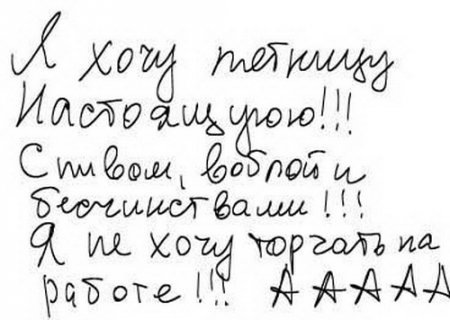 Я хочу петницу
Настоящую!!!
С пивом, воблой и
бесчинствами!!!
Я не хочу торчать на
работе!!! АААAА